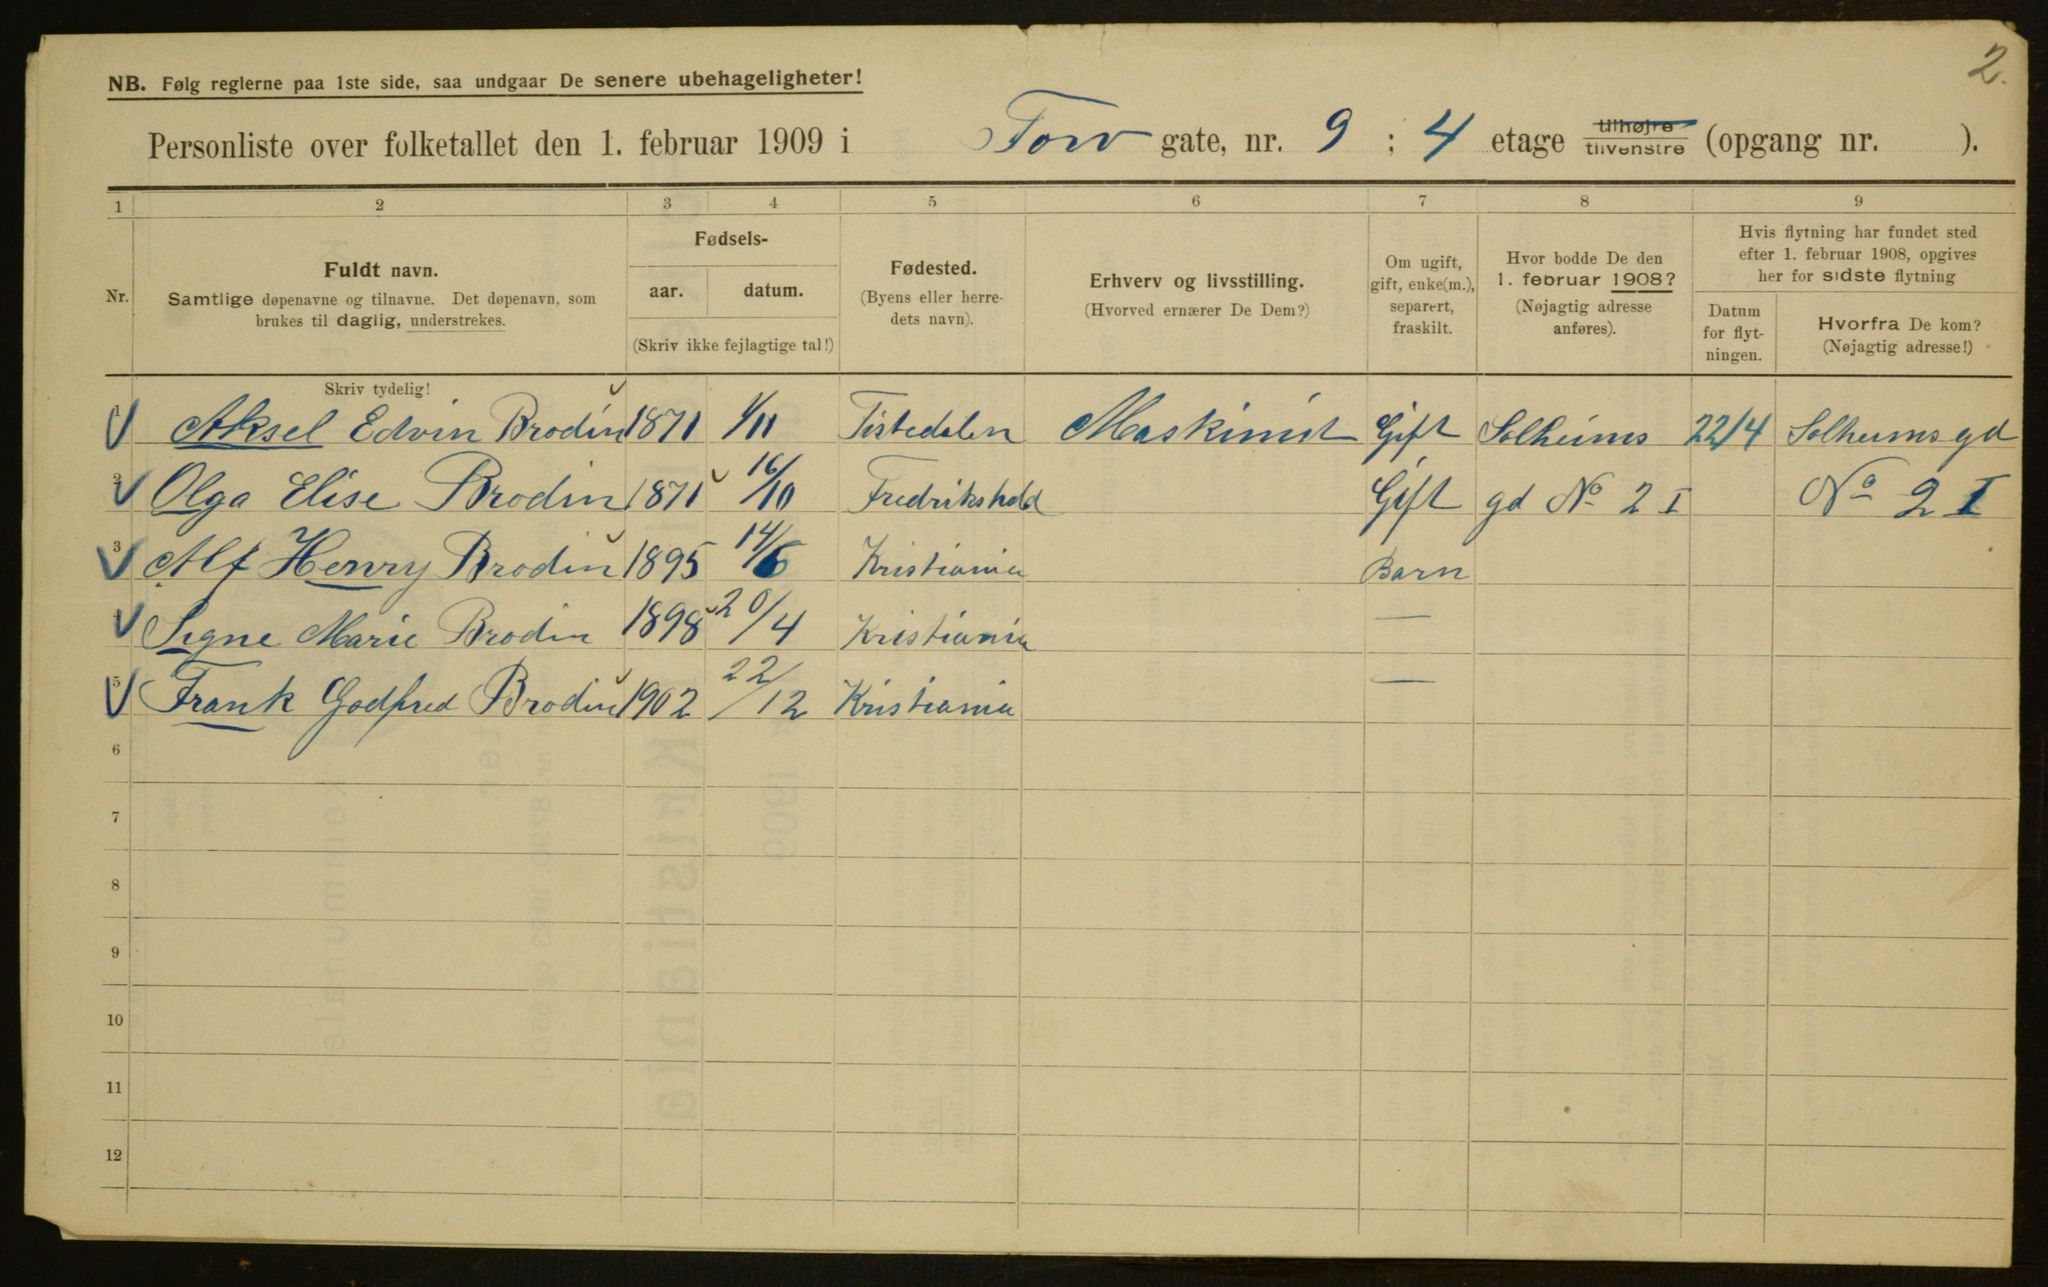 2.
NB. Følg reglerne paa 1ste side, saa undgaar De senere ubehageligheter!
Personliste over folketallet den 1. februar 1909 i Torv gate, nr. 9 ; 4 etage tilhøjre tilvenstre (opgang nr. ).
1 2 3 4 5 6 7 8 9
Nr.
Fuldt navn.
Samtlige døpenavne og tilnavne. Det døpenavn, som
brukes til daglig, understrekes.
Skriv tydelig!
Fødsels-
aar. datum.
(Skriv ikke fejlagtige tal!)
Fødested.
(Byens eller herre-
dets navn).
Erhverv og livsstilling.
(Hvorved ernærer De Dem?)
Om ugift,
gift, enke(m.),
separert,
fraskilt.
Hvor bodde De den
1. februar 1908?
(Nøjagtig adresse
anføres).
Hvis flytning har fundet sted
efter 1. februar 1908, opgives
her for sidste flytning
Datum
for flyt-
ningen.
Hvorfra De kom?
(Nøjagtig adresse!)
1 Aksel Edvin Brodin 1871 1/11 Tistedalen Maskinist Gift Solheims 22/4 Solheims gd
2 Olga Elise Brodin 1871 16/10 Fredrikshald Gift gd No 2 I No 2 I
3 Alf Henry Brodin 1895 14/6 Kristiania Barn
4 Signe Marie Brodin 1898 20/4 Kristiania —
5 Frank Godfred Brodin 1902 22/12 Kristiania —
6
7
8
9
10
11
12